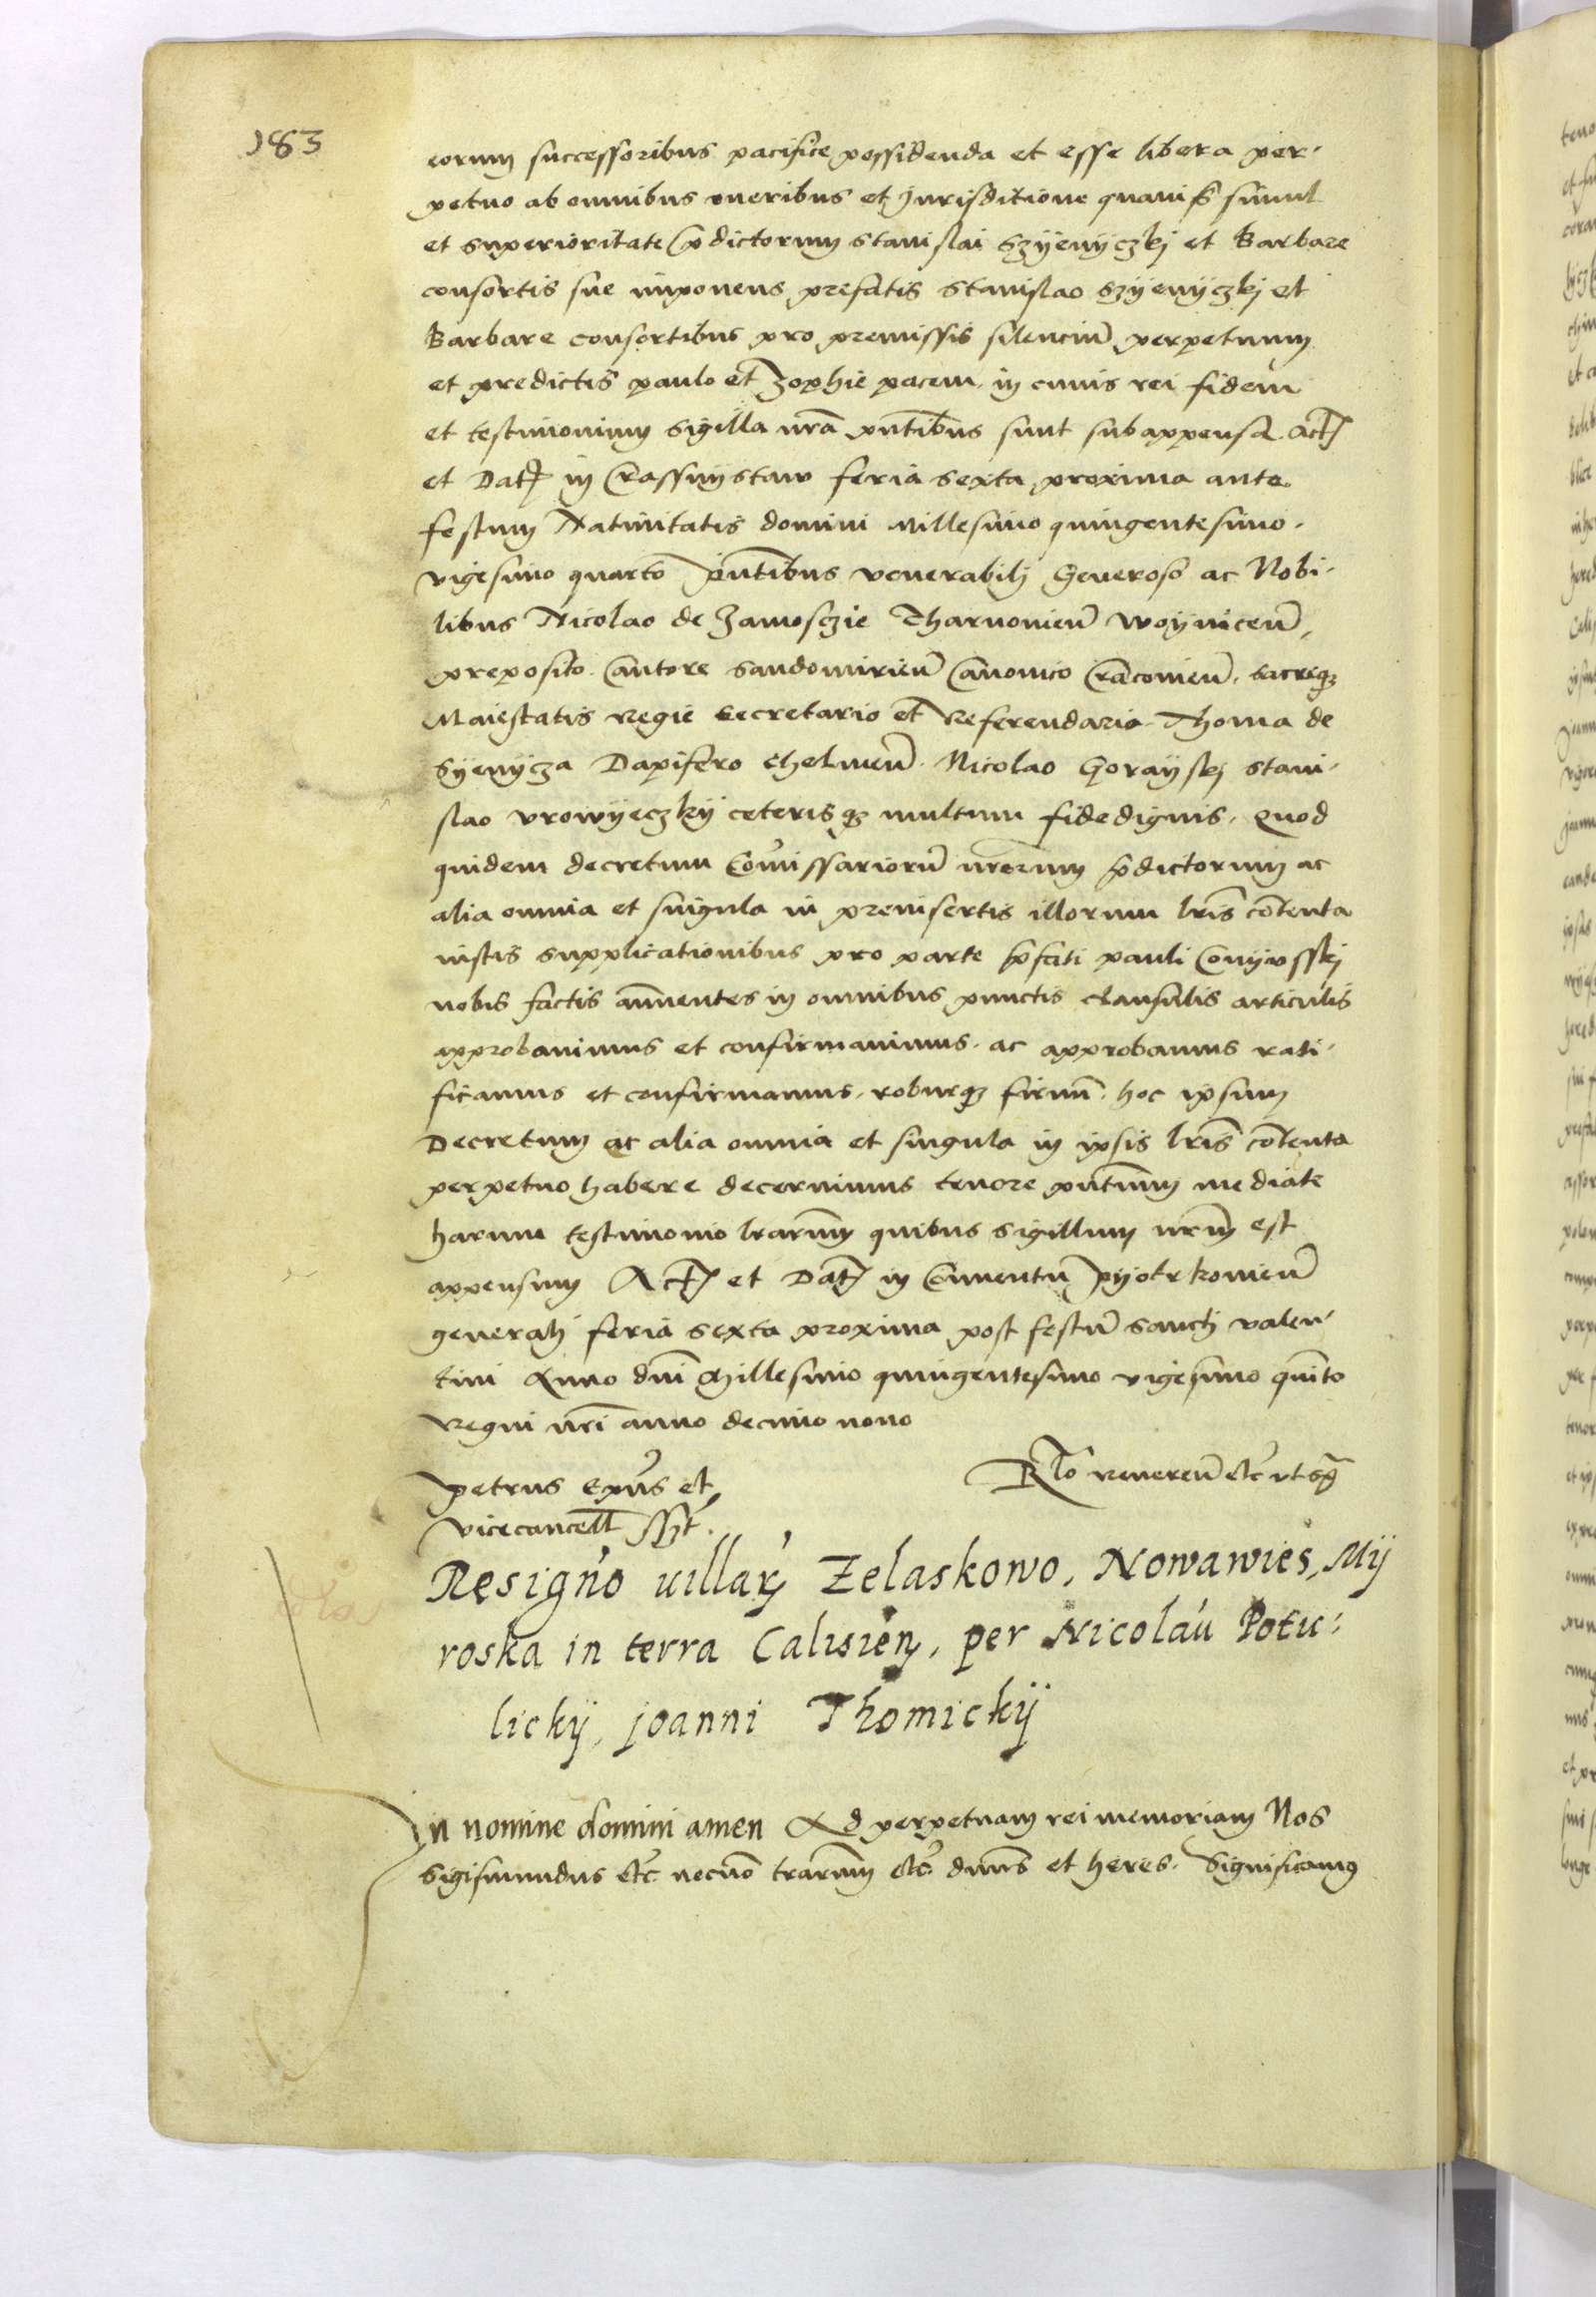 183
eorum successoribus pacifice possidenda et esse libera per-
petuo ab omnibus oneribus et Jurisditione quauis simul
et superioritate p̄dictorum stanislai Szÿenÿczkj et Barbare
consortis sue imponens prefatis stanislao Szÿenÿczkj et
Barbare consortibus pro premissis silenciū perpetuum
et predictis paulo et zophie pacem in cuius rei fidem
et testimonium sigilla nr̄a pn̄tibus sunt subappensa Actū
et Datū in Crassnÿstaw feria sexta proxima ante
festum Natiuitatis domini Millesimo quingentesimo
vigesimo quarto pn̄tibus venerabilj Generoso ac Nobi-
libus Nicolao de Zamosczie Tharnouien̄ Woÿnicen̄
preposito Cantore Sandomirien̄ Canonico Cracouien̄ sacreqʒ
Maiestatis Regie Secretario et Referendario Thoma de
Sÿenÿcza Dapifero Chelmen̄ Nicolao Goraÿskj Stani-
slao vrowÿeczkÿ ceterisqʒ multum fidedignis. Quod
quidem decretum Com̄issariorū nr̄orum p̄dictorum ac
alia omnia et singula in preinsertis illorum lr̄is cōtenta
iustis supplicationibus pro parte p̄fati pauli Conÿvsskj
nobis factis annuentes in omnibus punctis clausulis articulis
approbauimus et confirmauimus. ac approbamus rati-
ficamus et confirmamus. roburqʒ firmū hoc ipsum
Decretum ac alia omnia et singula in ipsis lr̄is cōtenta
perpetuo habere decernimus tenore pn̄tium mediate
harum testimonio lr̄arum quibus sigillum nr̄um est
appensum Actū et Datū in Conuentū pÿotrkouien̄
generalj feria sexta proxima post festū sanctj valen-
tini Anno dn̄i Millesimo quingentesimo vigesimo quīto
Regni nr̄i anno decimo nono
Petrus Ep̄us et
Rlō reueren̄ etc̄ vt sȓa
vicecancell̄ sspt̄.
Resigno uillarȝ Zelaskowo, Nowawies, Mÿ
roska in terra Calisien̄, per Nicolaū Potu-
lickÿ, joanni Thomickÿ
In nomine domini amen Ad perpetuam rei memoriam Nos
Sigismundus etc̄ necnō trarum etc̄ dn̄us et heres. Significamꝰ